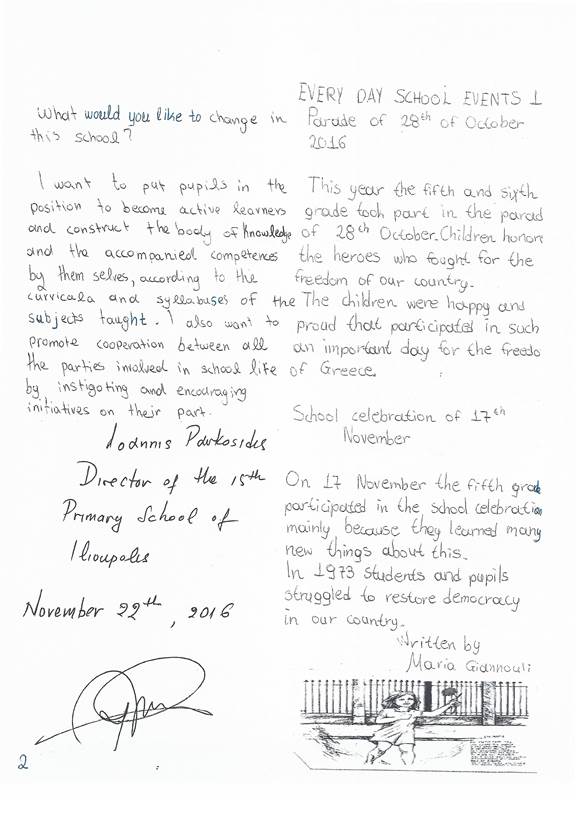 What would you like to change in
this school?
I want to put pupils in the
position to become active learners
and construct the body of knowledge
and the accompanied competences
by them selves, according to the
curricala and syllabuses of the
subjects taught. I also want to
promote cooperation between all
the parties involved in school life
by instigating and encouraging
initiatives on their part.
Ioannis Parkosidis
Director of the 15th
Primary School of
Ilioupolis
November 22th, 2016
2
EVERY DAY SCHOOL EVENTS 1
Parade of 28th of October
2016
This year the fifth and sixth
grade took part in the parad
of 28th October. Children honore
the heroes who fought for the
freedom of our country.
The children were happy and
proud that participated in such
an important day for the freedo
of Greece.
School celebration of 17th
November
On 17 November the fifth grade
participated in the school celebration
mainly because they learned many
new things about this.
In 1973 students and pupils
struggled to restore democracy
in our country.
Written by
Maria Giannouli